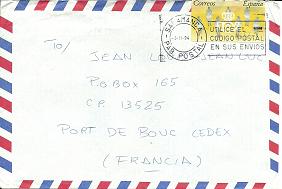 Correos España
SALAMANCA
UTILICE EL
CODIGO POSTAL
EN SUS ENVIOS
PAR. POSTAL
TO/ JEAN LUC
P.O BOX 165
C.P. 13525
PORT DE BOUC CEDEX
(FRANCIA)